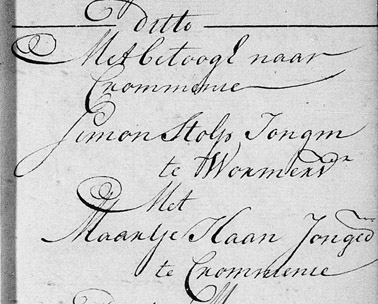 D ditto
Met betoogl naar
Crommenie
Simon Stolp Jongm
te Wormerv^r
Met
Maartje Haan Jonged
te Crommenie